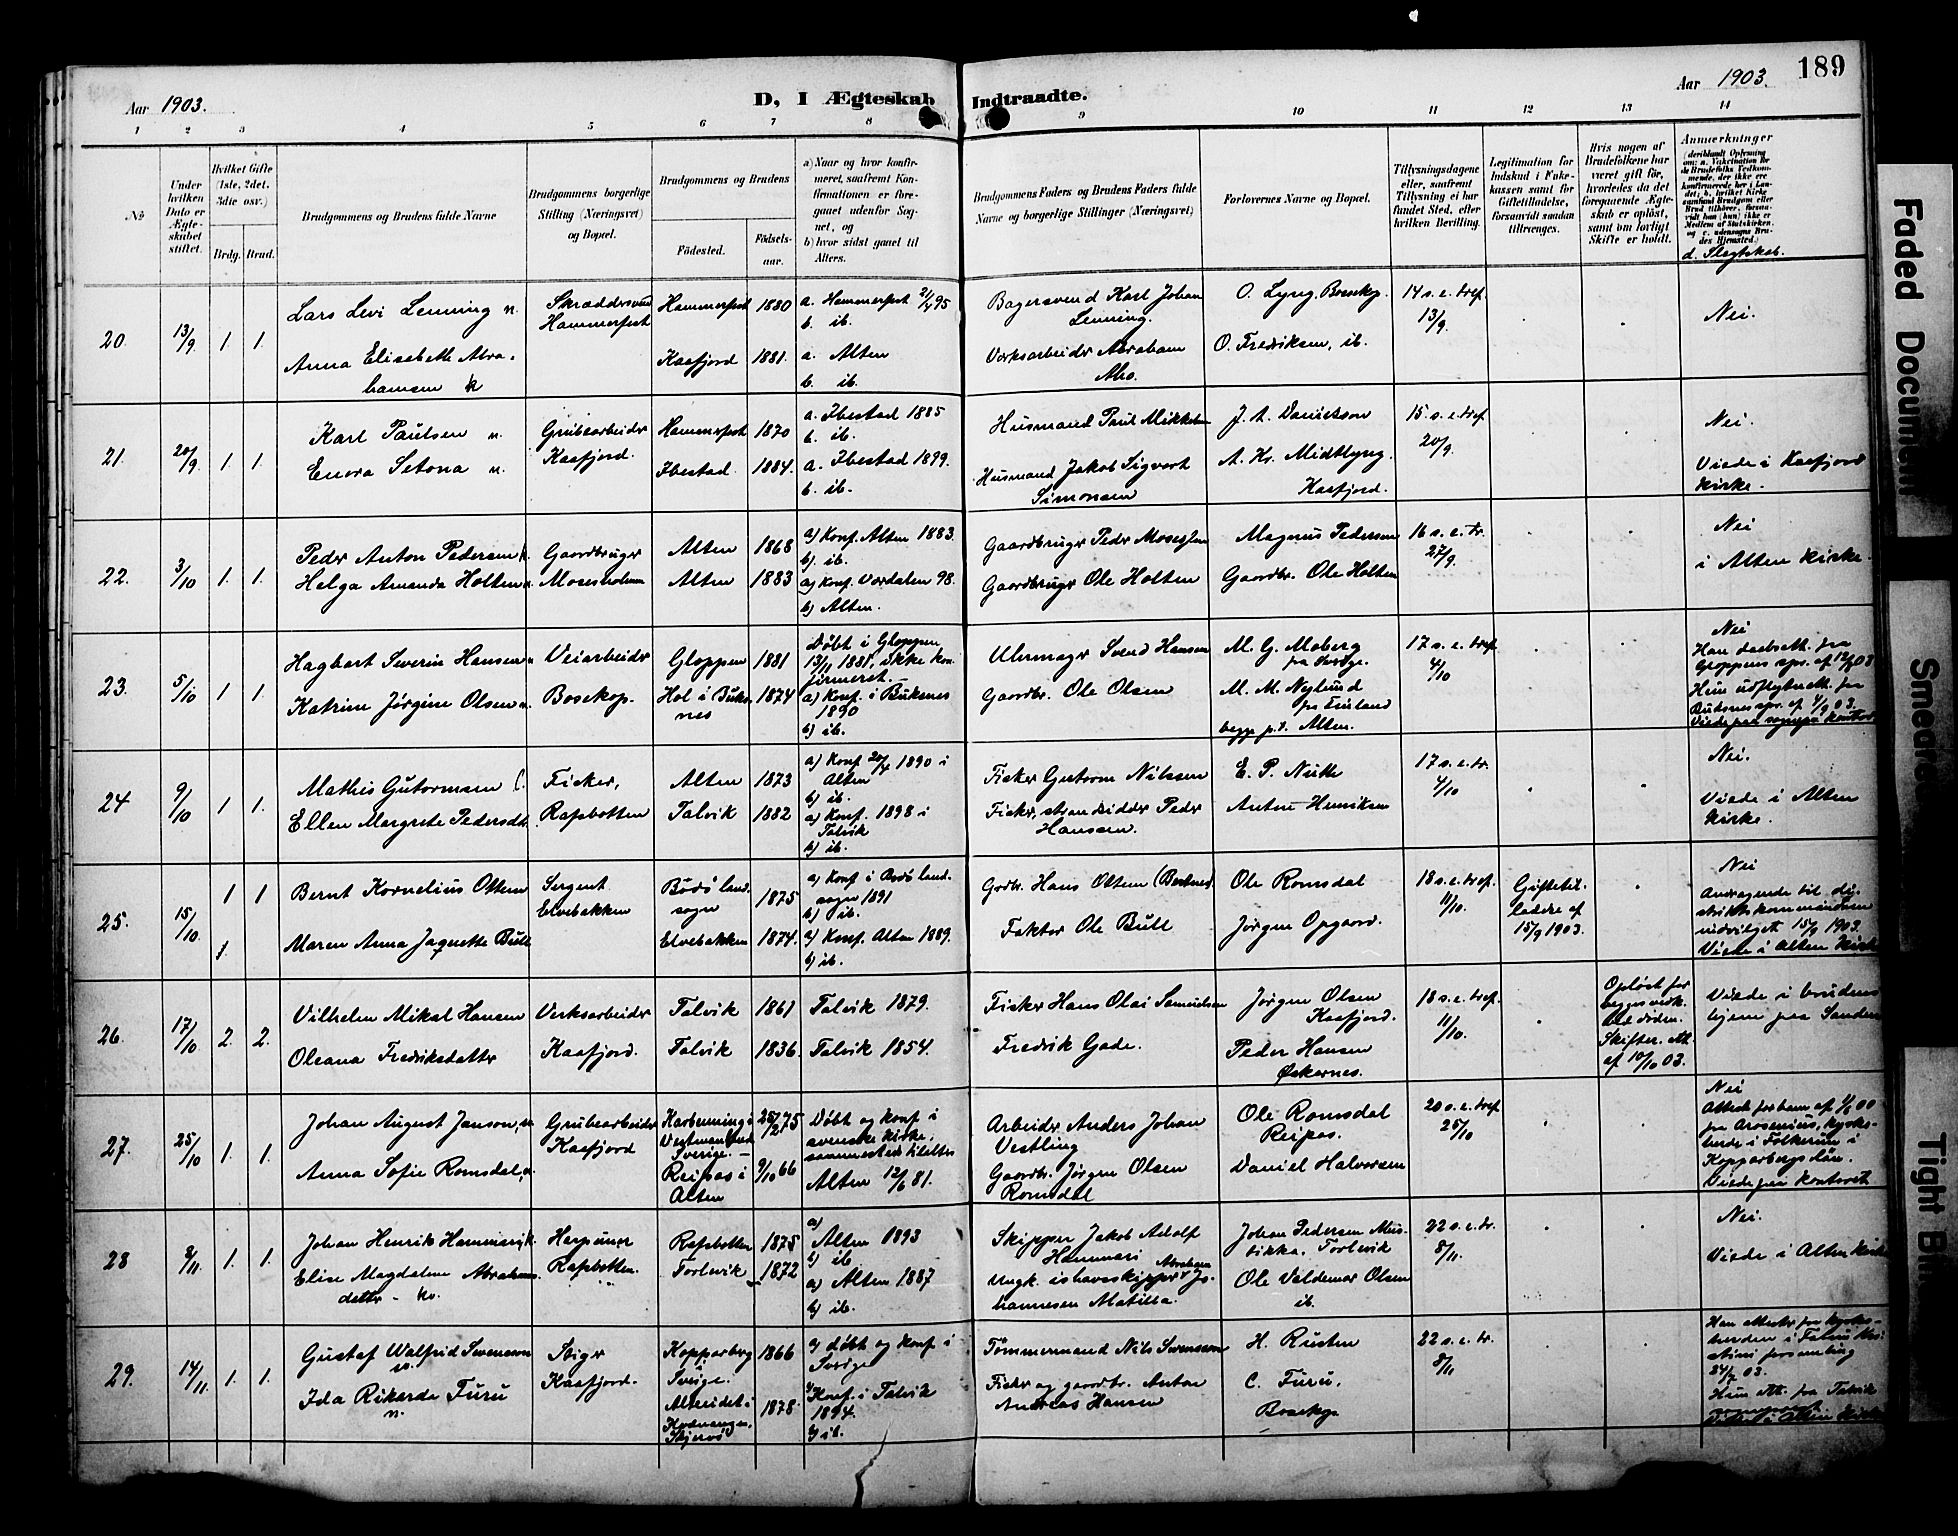 189
Aar 1903.
D, I Ægteskab Indtraadte.
Aar 1903.
1 2 3 4 5 6 7 8 9 10 11 12 13 14
No
Under hvilken Dato er Ægteskabet stiftet.
Hvilket Gifte (1ste, 2det, 3die osv.)
Brdg. Brud.
Brudgommens og Brudens fulde Navne
Brudgommens borgerlige Stilling (Næringsvei) og Bopæl.
Brudgommens og Brudens
Fødested.
Fødselsaar.
a) Naar og hvor konfirmeret, saafremt Konfirmationen er foregaaet udenfor Sognet, og
b) hvor sidst gaaet til Alters.
Brudgommens Faders og Brudens Faders fulde Navne og borgerlige Stillinger (Næringsvei)
Forlovernes Navne og Bopæl.
Tillysningsdagene eller, saafremt Tillysning ei har fundet Sted, efter hvilken Bevilling.
Legitimation for Indskud i Enkekassen samt for Giftetilladelse, forsaavidt saadan tiltrænges.
Hvis nogen af Brudefolkene har været gift før, hvorledes da det foregaaende Ægteskab er opløst, samt om lovligt Skifte er holdt.
Anmærkninger
d. Slegtskab.
20. 13/9 1. 1.
Lars Levi Lenning n.
Anna Elisabeth Abrahamsen k
Skræddersvend
Hammerfest
Hammerfest 1880
Kaafjord 1881.
a. Hammerfest 21/4 95
b. ib.
a. Alten
b. ib.
Bagersvend Karl Johan Lenning.
Verksarbeider Abraham Aho.
O. Lyng, Bossekop.
O. Fredriksen, ib.
14 s.e.tref. 13/9.
Nei.
21. 20/9. 1. 1.
Karl Paulsen n.
Enora Setona n.
Grubearbeider
Kaafjord.
Hammerfest 1870
Ibestad. 1884.
a. Ibestad 1885
b. ib.
a. Ibestad 1899.
b. ib.
Husmand Paul Mikkelsen
Husmand Jakob Sigvart Simonsen
J. A. Danielsson
A. Kr. Midtlyng.
Kaafjord.
15. s.e.tref 20/9.
Nei.
Viede i Kaafjord Kirke.
22. 3/10 1. 1.
Peder Anton Pedersen
Helga Amanda Holten n.
Gaardbruger
Mosesholmen
Alten 1868
Alten 1883
a) Konf. Alten 1883.
b) ib.
a) Konf. Værdalen 98.
b) Alten.
Gaardbruger Peder Mosessen
Gaardbruger Ole Holten
Magnus Pedersen
Gaardbr. Ole Holten
16 s.e.tr. 27/9.
Nei
i Alten Kirke.
23. 5/10 1 1.
Hagbart Severin Hansen n
Katrine Jørgine Olsen n
Veiarbeider
Bossekop.
Gloppen 1881
Hol i Buksnes 1874
Døbt i Gloppen 13/11 1881, ikke konfirmeret.
a) Konf. i Buksnes 1890
b) ib.
Uhrmager Svend Hansen
Gaardbr. Ole Olsen
M. G. Moberg fra Sverige.
M. M. Nylund fra Finland
begge p.t. Alten.
17 s.e.tref. 4/10
Nei
24 9/10 1 1.
Mathis Gutormsen
Ellen Margrete Pedersdtr.
Fisker,
Rafsbotten
Alten 1873
Talvik 1882
a) Konf 20/4 1890 i Alten
b) ib.
a) Konf. 1898 i Talvik
b) ib.
Fisker Gutorm Nilssen
Fisker, strandsidder Peder Hansen.
E. P. Nutti
Anton Henriksen
17 s.e.tr. 4/10
Nei.
Viede i Alten Kirke.
25. 15/10. 1 1
Bernt Kornelius Olsen
Maren Anna Jaquette Bull
Sergent
Elvebakken
Bodø landsogn 1875
Elvebakken 1874.
a) Konf i Bodø landsogn 1891
b) ib.
a) Konf. Alten 1889.
b) ib.
Grbr. Hans Olsen
Faktor Ole Bull
Ole Romsdal
Jørgen Opgaard.
18 s.e.tref. 11/10.
Giftetilladelse af 15/9 1903.
Nei
Andragende til distriktskommandoen indvilget 15/9 1903.
Viede i Alten Kirke
26. 17/10 2. 2.
Vilhelm Mikal Hansen
Oleana Fredriksdatter
Verksarbeider
Kaafjord.
Talvik 1861
Talvik 1836.
Talvik 1879.
Talvik 1854.
Fisker Hans Olai Samuelsen
Fredrik Gade.
Jørgen Olsen Kaafjord.
Peder Hansen Øskernes.
18 s.e.tref. 11/10.
Opløst for begges vedk. ved døden.
Skifter. att. af 10/10 03.
Viede i brudens hjem paa Sanden
27. 25/10 1. 1.
Johan August Janson, n
Anna Sofie Romsdal, n.
Grubearbeider
Kaafjord
Sverige.
25/2 75
Reipas i Alten 9/10 66
Døbt og konf i svenske kirke,
Alten 12/6 81.
Arbeider Anders Johan Vestling
Gaardbr. Jørgen Olsen Romsdal
Ole Romsdal Reipas.
Daniel Halvorsen
20 s.e.tref 25/10
Nei
Kopparbergs län.
Viede paa kontoret
28 8/11. 1. 1.
Johan Henrik Hammari, k
Elise Magdalene Abrahamsdatter - kv.
Harpuner
Rafsbotten.
Rafsbotten 1875
Torlevik 1872
a) Alten 1893
b) ib
a) Alten 1887
b) ib.
Skipper Jakob Adolf Hammari
ungk. ishavsskipper Abraham Johannesen Matilla.
Johan Pedersen Torlevik
Ole Valdemar Olsen ib.
22 s.e.tr. 8/11.
Nei.
Viede i Alten Kirke
29. 14/11. 1. 1.
Gustaf Walfrid Svensson n.
Ida Rikarda Furu n.
Stiger
Kaafjord.
Kopparberg i Sverige. 1866
Skjervø 1878.
a) døbt og konf i Sverige
a) Konf. i Talvik 1894.
b) ib.
Tømmermand Nils Svensson
Fisker og gaardbr. Anton Andreas Hansen
H. Rusten
C. Furu.
Bossekop
22 s.e.tr. 8/11
Viede i Alten Kirke
Faded Document
Smeared
Tight Bin